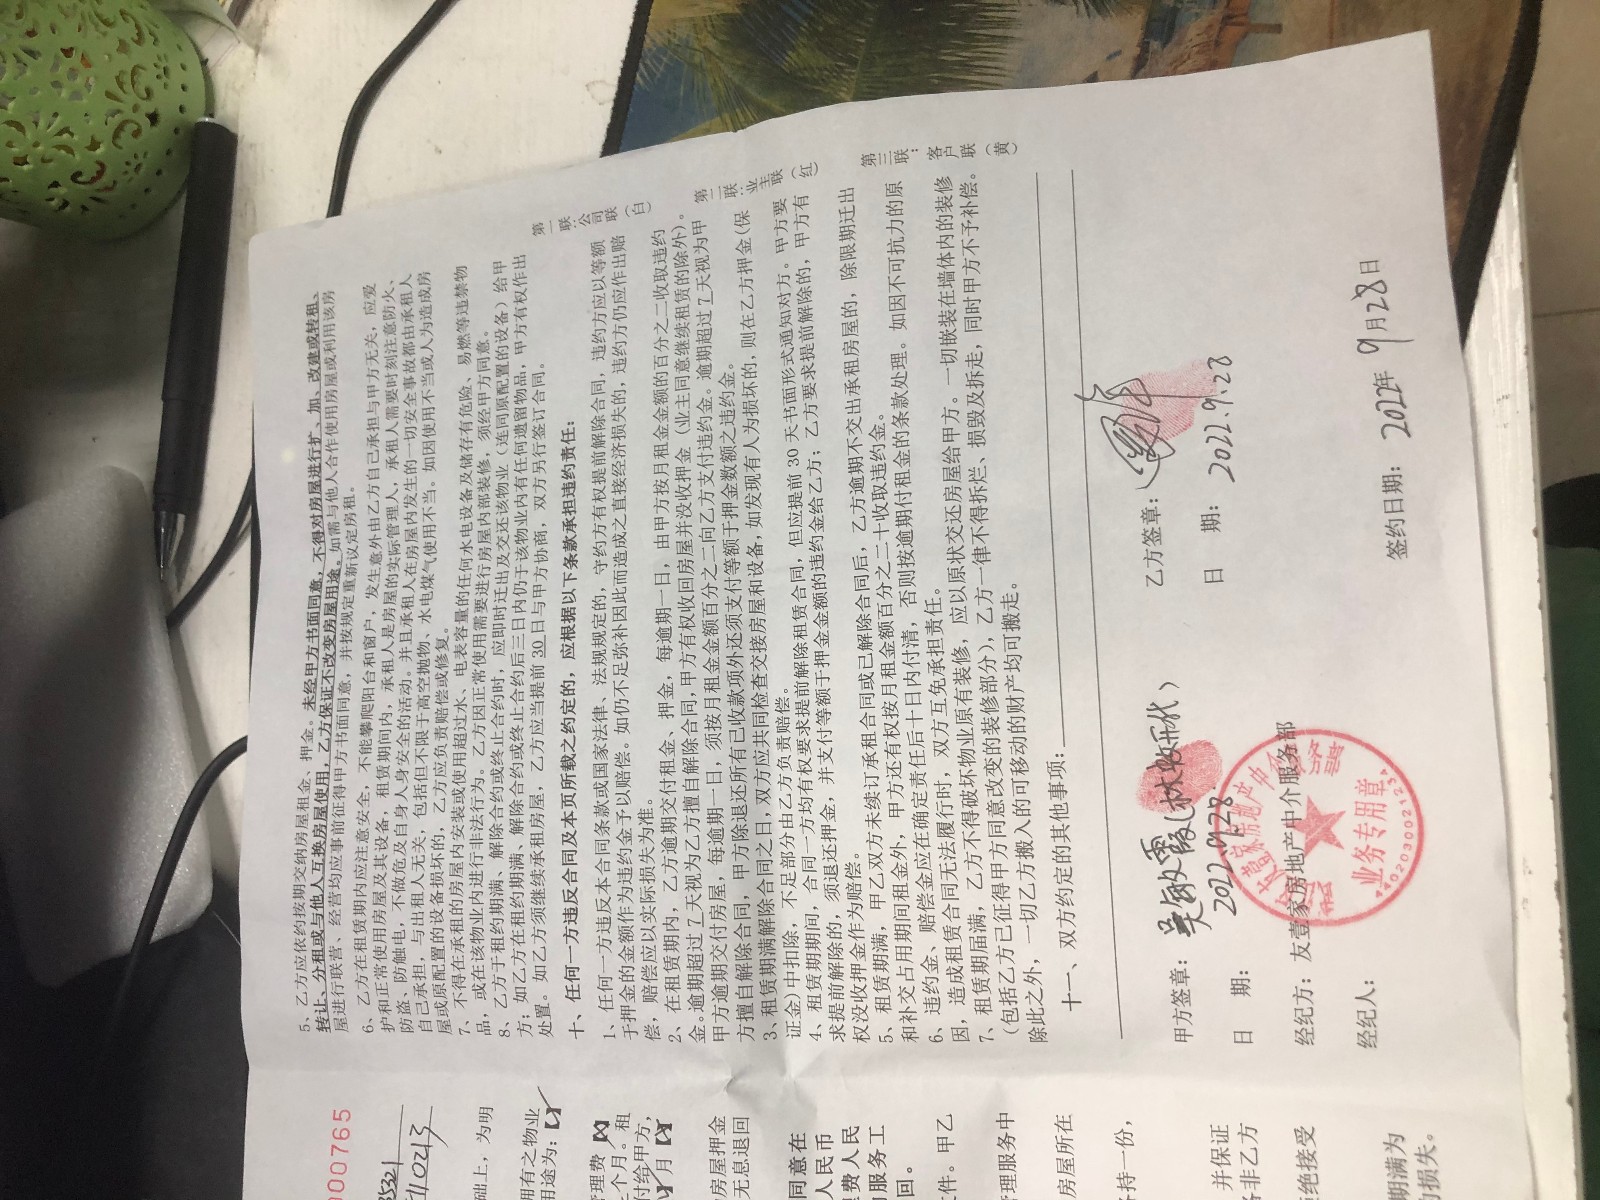 5、乙方应依约按期交纳房屋租金、押金。未经甲方书面同意，不得对房屋进行扩、加、改建或转租、
转让、分租或与他人互换房屋使用，乙方保证不改变房屋用途。如需与他人合作使用房屋或利用该房
屋进行联营、经营均应事前征得甲方书面同意，并按规定重新议定房租。
6、乙方在租赁期内应注意安全，不能攀爬阳台和窗户，发生意外由乙方自己承担与甲方无关，应爱
护和正常使用房屋及其设备，租赁期间内，承租人是房屋的实际管理人，承租人需要时刻注意防火、
防盗、防触电，不做危及自身人身安全的活动。并且承租人在房屋内发生的一切安全事故都由承租人
自己承担，与出租人无关，包括但不限于高空抛物、水电煤气使用不当。如因使用不当或人为造成房
屋或原配置的设备损坏的，乙方应负责赔偿或修复。
7、不得在承租的房屋内安装或使用超过水、电表容量的任何水电设备及储存有危险、易燃等违禁物
品，或在该物业内进行非法行为。乙方因正常使用需要进行房屋内部装修，须经甲方同意。
8、乙方于租约期满、解除合约或终止合约时，应即时迁出及交还该物业（连同原配置的设备）给甲
方；如乙方在租约期满、解除合约或终止合约后三日内仍于该物业内有任何遗留物品，甲方有权作出
处置。如乙方须继续承租房屋，乙方应当提前30日与甲方协商，双方另行签订合同。
十、任何一方违反合同及本页所载之约定的，应根据以下条款承担违约责任：
1、任何一方违反本合同条款或国家法律、法规规定的，守约方有权提前解除合同，违约方应以等额
于押金的金额作为违约金予以赔偿。如仍不足弥补因此而造成之直接经济损失的，违约方仍应作出赔
偿，赔偿应以实际损失为准。
2、在租赁期内，乙方逾期交付租金、押金，每逾期一日，由甲方按月租金金额的百分之二收取违约
金。逾期超过7天视为乙方擅自解除合同，甲方有权收回房屋并没收押金（业主同意继续租赁的除外）。
甲方逾期交付房屋，每逾期一日，须按月租金金额百分之二向乙方支付违约金。逾期超过7天视为甲
方擅自解除合同，甲方除退还所有已收款项外还须支付等额于押金数额之违约金。
3、租赁期满解除合同之日，双方应共同检查交接房屋和设备，如发现有人为损坏的，则在乙方押金（保
证金）中扣除，不足部分由乙方负责赔偿。
4、租赁期期间，合同一方均有权要求提前解除租赁合同，但应提前30天书面形式通知对方。甲方要
求提前解除的，须退还押金，并支付等额于押金金额的违约金给乙方；乙方要求提前解除的，甲方有
权没收押金作为赔偿。
5、租赁期满，甲乙双方未续订承租合同或已解除合同后，乙方逾期不交出承租房屋的，除限期迁出
和补交占用期间租金外，甲方还有权按月租金额百分之二十收取违约金。
6、违约金、赔偿金应在确定责任后十日内付清，否则按逾期付租金的条款处理。如因不可抗力的原
因，造成租赁合同无法履行时，双方互免承担责任。
7、租赁期届满，乙方不得破坏物业原有装修，应以原状交还房屋给甲方。一切嵌装在墙体内的装修
（包括乙方已征得甲方同意改变的装修部分），乙方一律不得拆烂、损毁及拆走，同时甲方不予补偿。
除此之外，一切乙方搬入的可移动的财产均可搬走。
十一、双方约定的其他事项：
甲方签章：
乙方签章：
日　期：2022.09.28
日　期：2022.9.28
经纪方：友壹家房地产中介服务部
经纪人：
签约日期：2022年9月28日
业务专用章
第一联：公司联（白）
第二联：业主联（红）
第三联：客户联（黄）
000765
础上，为明
拥有之物业
用途为：
管理费
个月。租
付给甲方，
月
房屋押金
无息退回
同意在
人民币
费人民
服务工
回。
件。甲乙
管理服务中
房屋所在
持一份，
并保证
非乙方
拒绝接受
期满为
损失。